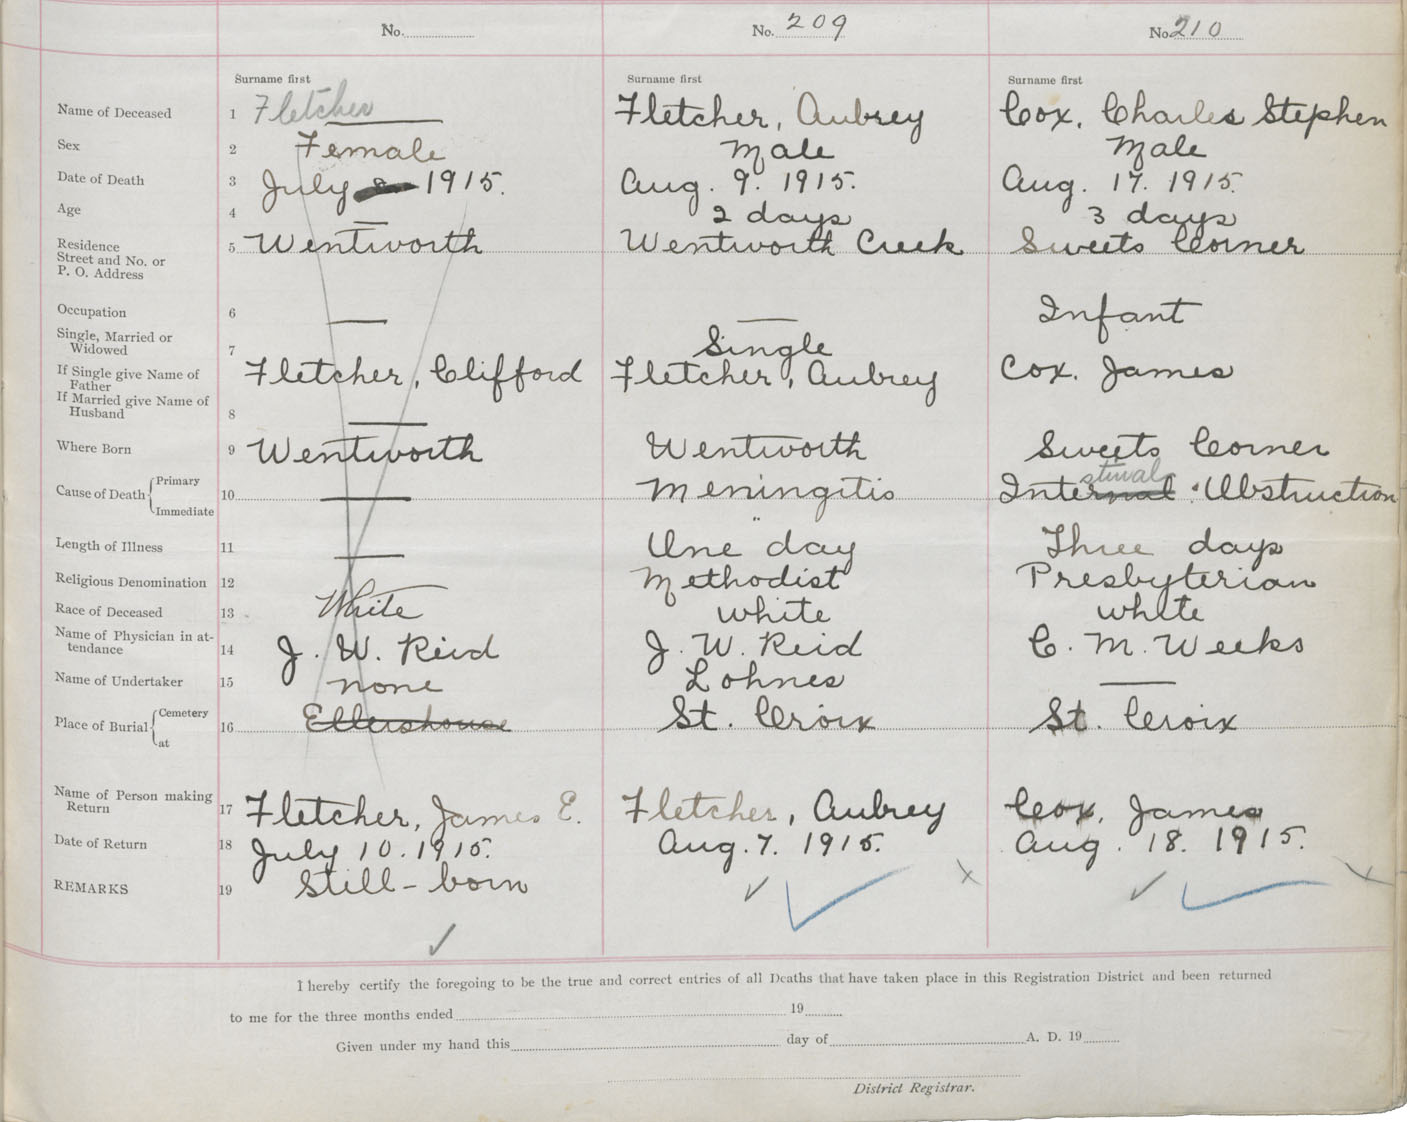 No. No. 209 No. 210
Surname first Surname first Surname first
Name of Deceased 1 Fletcher Fletcher, Aubrey Cox, Charles Stephen
Sex 2 Female Male Male
Date of Death 3 July 1915. Aug. 9. 1915. Aug. 17. 1915.
Age 4 2 days 3 days
Residence 5 Wentworth Wentworth Creek Sweets Corner
Street and No. or
P. O. Address
Occupation 6 Infant
Single, Married or
Widowed 7 Single
If Single give Name of Fletcher, Clifford Fletcher, Aubrey Cox. James
Father
If Married give Name of
Husband 8
Where Born 9 Wentworth Wentworth Sweets Corner
Cause of Death { Primary Immediate 10 Meningitis Internal stinal Obstruction
Length of Illness 11 One day Three days
Religious Denomination 12 Methodist Presbyterian
Race of Deceased 13 White white white
Name of Physician in at-
tendance 14 J. W. Reid J. W. Reid C. M. Weeks
Name of Undertaker 15 none Lohnes
Place of Burial { Cemetery at 16 Ellershouse St. Croix St. Croix
Name of Person making
Return 17 Fletcher, James E. Fletcher, Aubrey Cox, James
Date of Return 18 July 10. 1915. Aug. 7. 1915. Aug. 18. 1915.
REMARKS 19 Still-born
I hereby certify the foregoing to be the true and correct entries of all Deaths that have taken place in this Registration District and been returned
to me for the three months ended 19
Given under my hand this day of A. D. 19
District Registrar.